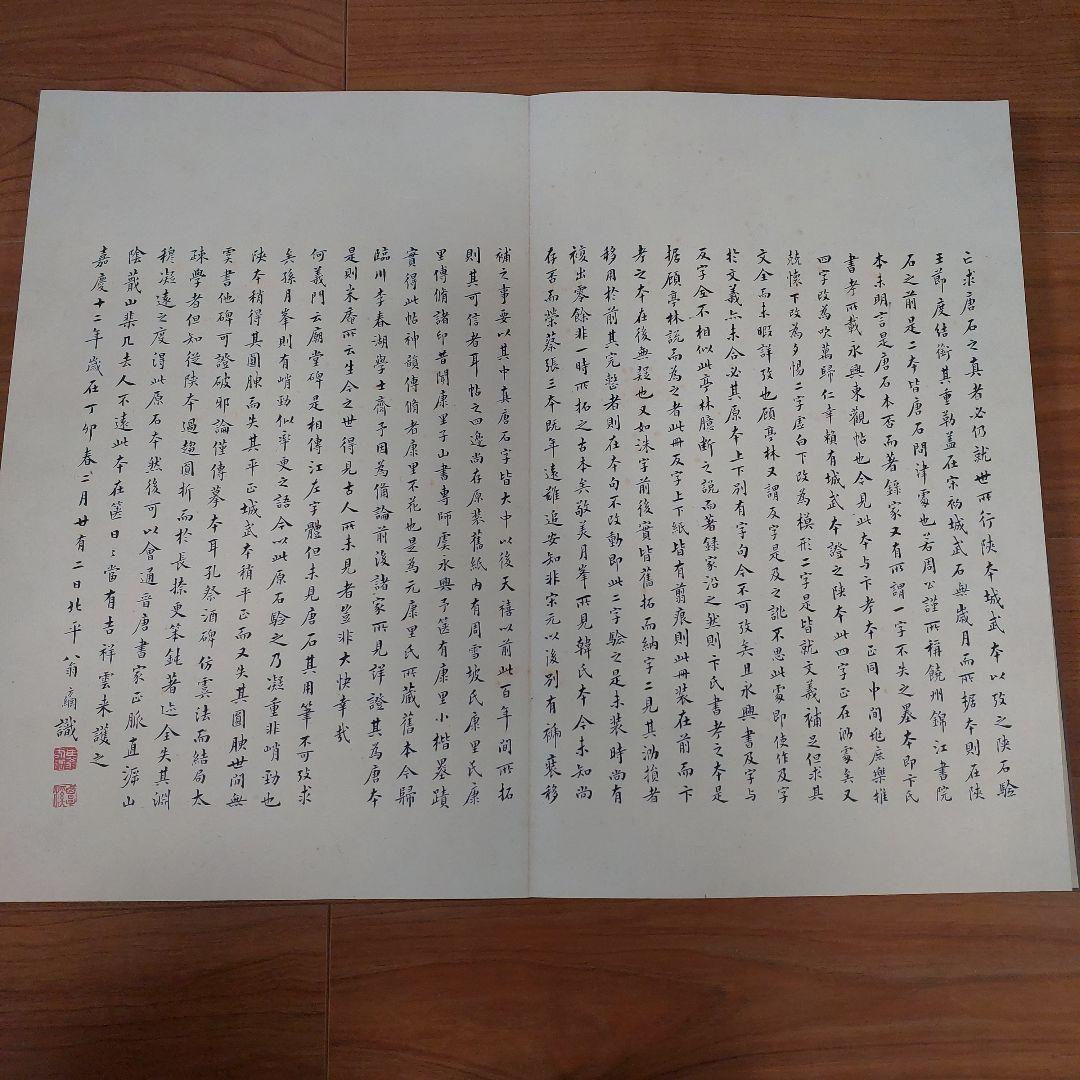 亡求唐石之真者必仍就世所行陝本城武本以攷之陝石驗
王節度結銜其重勒蓋在宋初城武石無歲月而所据本則在陝
石之前是二本皆唐石問津處也若周公謹所稱饒州錦江書院
本未明言是唐石本否而著錄家又有所謂一字不失之墨本即卞氏
書考所載永興東觀帖也今見此本与卞考本正同中間地庶樂推
四字改為吹萬歸仁幸賴有城武本證之陝本此四字正石泐處矣又
兢懷下改為夕惕二字虛白下改為模形二字是皆就文義補足但求其
文全而未暇詳攷也顧亭林又謂反字是及之訛不思此處即使作及字
於文義亦未合必其原本上下別有字句今不可攷矣且永興書及字与
反字全不相似此亭林臆斷之說而著錄家沿之然則卞氏書考之本是
据顧亭林說而為之者此冊反字上下紙皆有翦痕則此冊裝在前而卞
考之本在後無疑也又如洙字前後實皆舊拓而納字二見其泐損者
移用於前其完整者則在本句不改動即此二字驗之是未裝時尚有
複出零餘非一時所拓之古本矣敬美月峯所見韓氏本今未知尚
存否而榮蔡張三本既年遠難追安知非宋元以後別有補裝移
補之事要以其中真唐石字皆大中以後天禧以前此百年間所拓
則其可信者耳帖之四邊尚存原裝舊紙內有周雪坡氏康里氏康
里傳脩諸印昔聞康里子山書專師虞永興予篋有康里小楷墨蹟
實得此帖神韻傳脩者康里不花也是為元康里氏所藏舊本今歸
臨川李春湖學士齋予因為備論前後諸家所見詳證其為唐本
是則米庵所云生今之世得見古人所未見者豈非大快幸哉
何義門云廟堂碑是相傳江左字體但未見唐石其用筆不可攷求
矣孫月峯則有峭勁似率更之語今以此原石驗之乃凝重非峭勁也
陝本稍得其圓腴而失其平正城武本稍平正而又失其圓腴世間無
虞書他碑可證破邪論僅傳摹本耳孔祭酒碑仿虞法而結局太
疎學者但知從陝本過趨圓折而於長捺更笨鈍著迹全失其淵
穆凝遠之度得此原石本然後可以會通晉唐書家正脈直溯山
陰蕺山棐几去人不遠此本在篋日日當有吉祥雲来護之
嘉慶十二年歲在丁卯春二月廿有二日北平翁方綱識